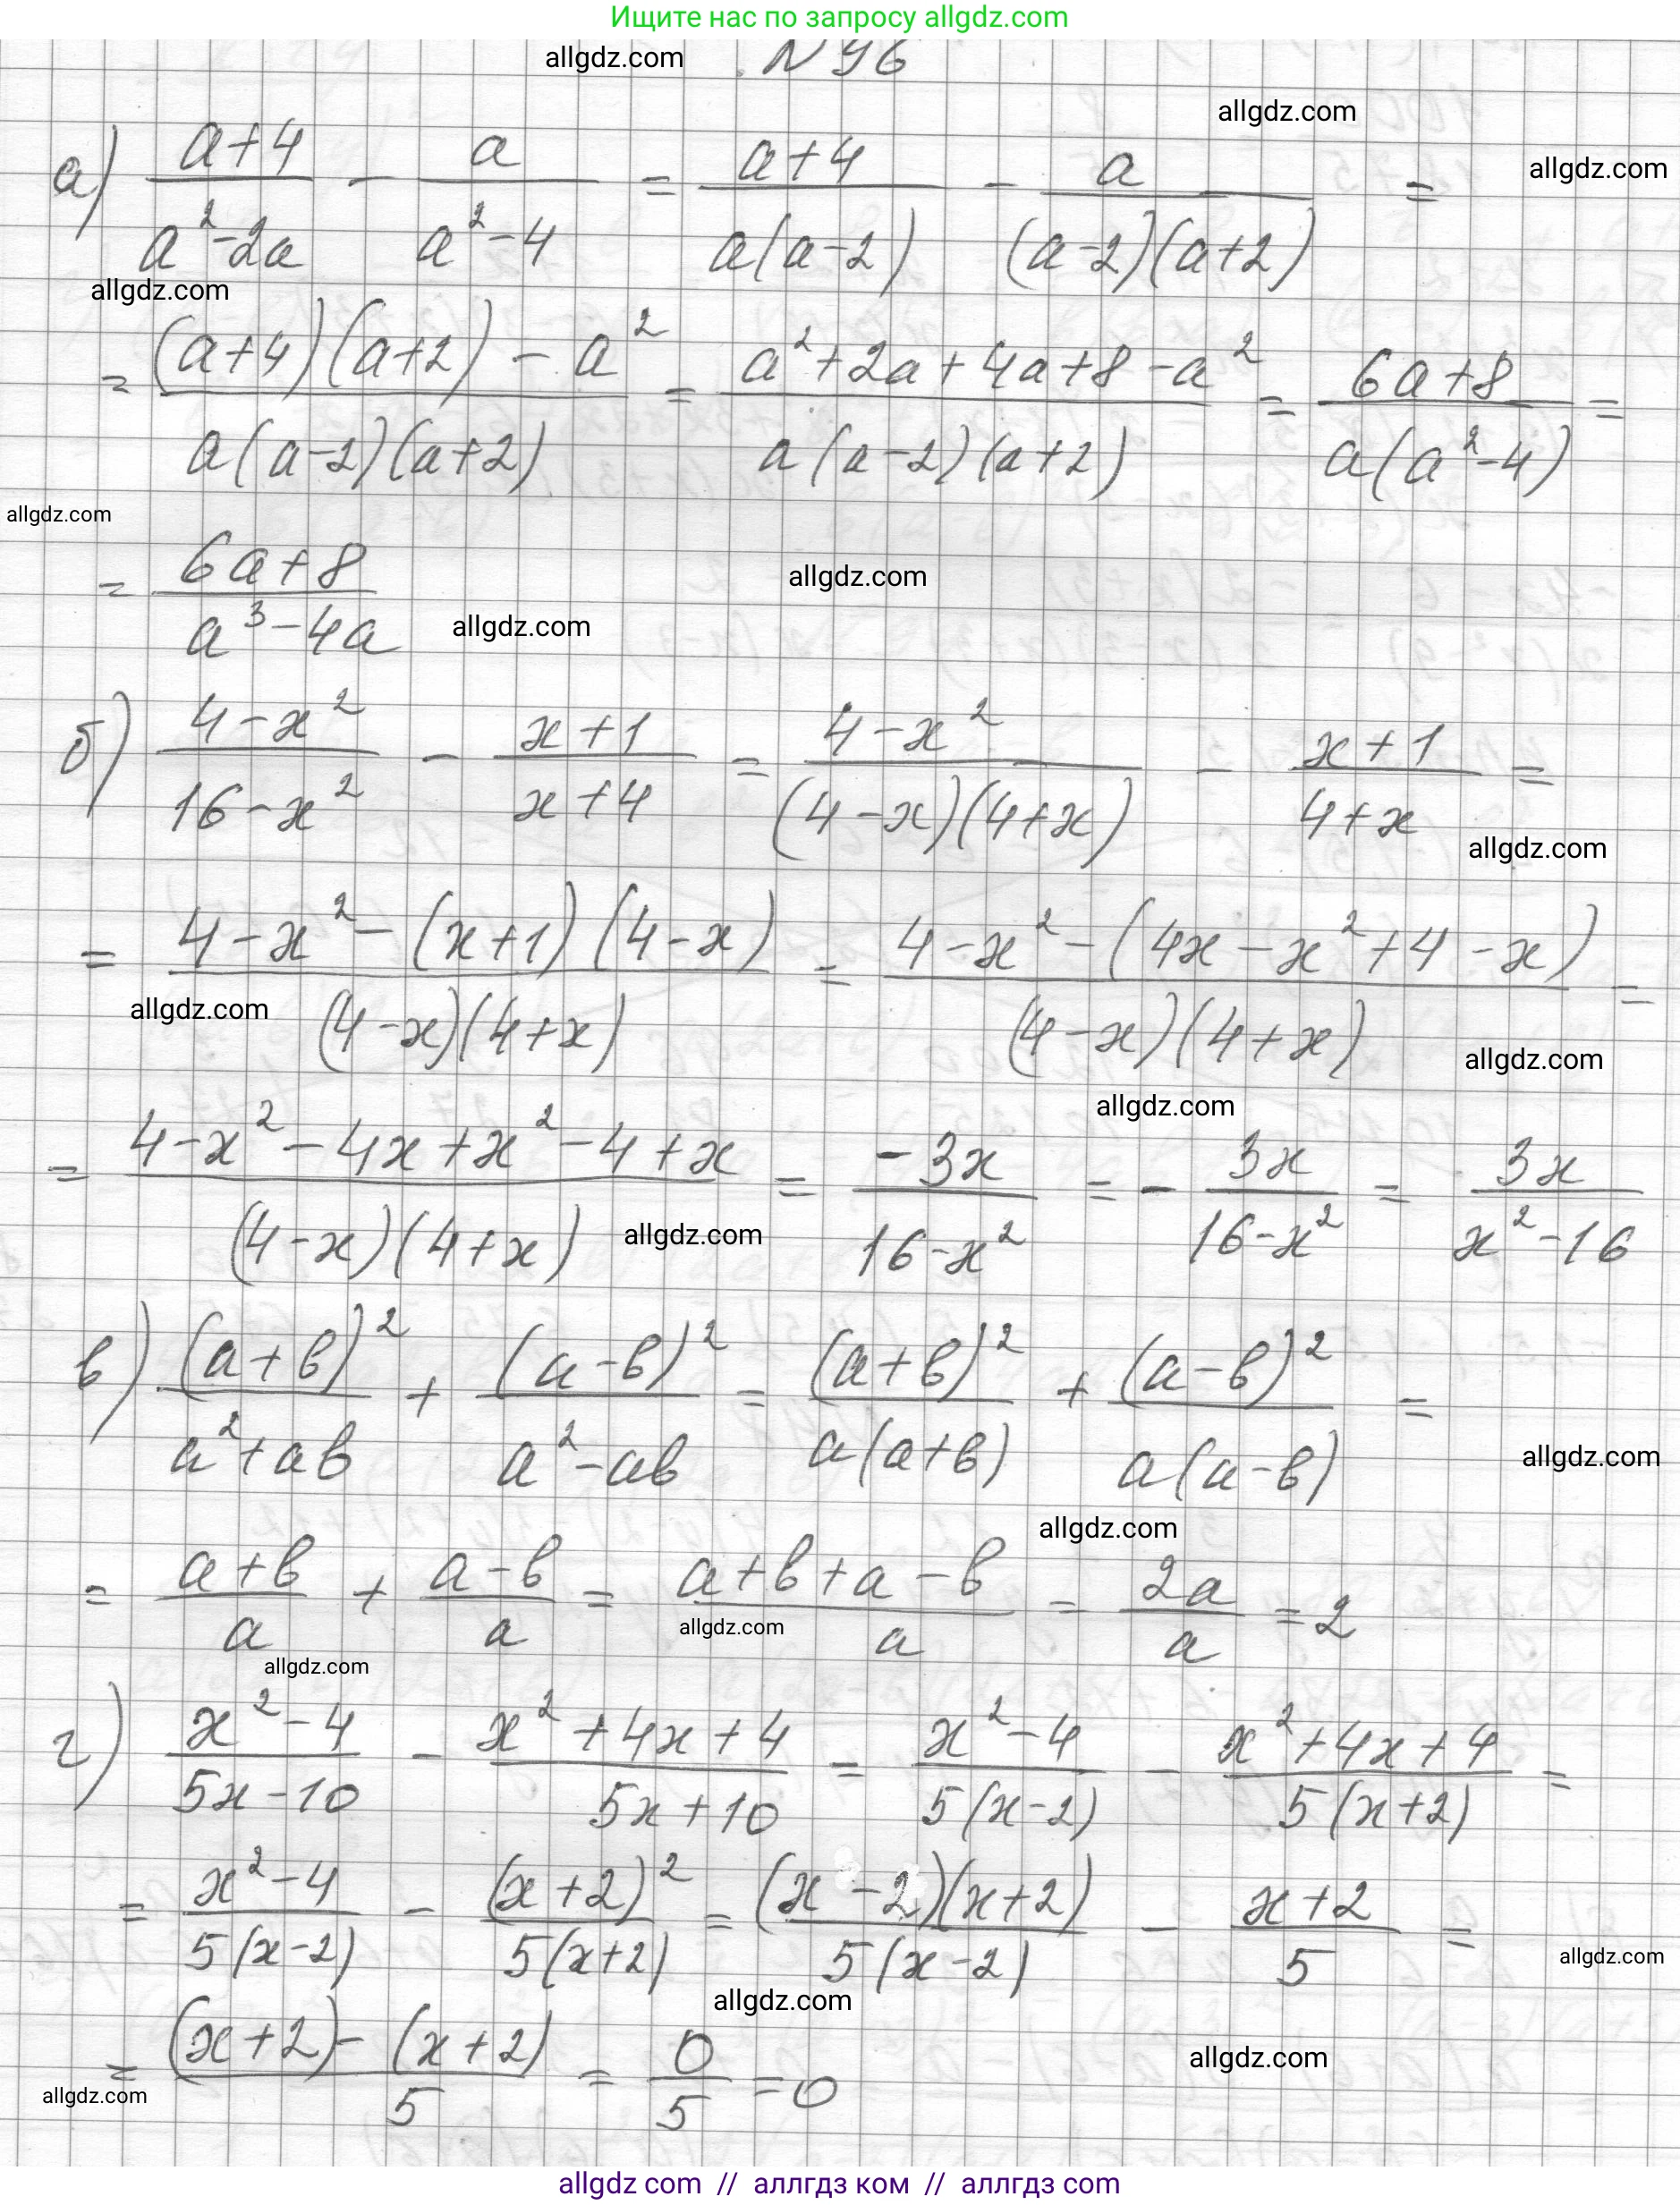 Ищите нас по запросу allgdz.com
allgdz.com
N 96
allgdz.com
а) (a+4)/(a²-2a) - a/(a²-4) = (a+4)/(a(a-2)) - a/((a-2)(a+2)) =
allgdz.com
allgdz.com
= ((a+4)(a+2) - a²)/(a(a-2)(a+2)) = (a²+2a+4a+8-a²)/(a(a-2)(a+2)) = (6a+8)/(a(a²-4)) =
allgdz.com
= (6a+8)/(a³-4a)
allgdz.com
allgdz.com
б) (4-x²)/(16-x²) - (x+1)/(x+4) = (4-x²)/((4-x)(4+x)) - (x+1)/(4+x) =
allgdz.com
= (4-x²-(x+1)(4-x))/((4-x)(4+x)) = (4-x²-(4x-x²+4-x))/((4-x)(4+x)) =
allgdz.com
allgdz.com
allgdz.com
= (4-x²-4x+x²-4+x)/((4-x)(4+x)) = (-3x)/(16-x²) = - 3x/(16-x²) = 3x/(x²-16)
allgdz.com
в) (a+в)²/(a²+aв) + (a-в)²/(a²-aв) = (a+в)²/(a(a+в)) + (a-в)²/(a(a-в)) =
allgdz.com
allgdz.com
= (a+в)/a + (a-в)/a = (a+в+a-в)/a = 2a/a = 2
allgdz.com
allgdz.com
г) (x²-4)/(5x-10) - (x²+4x+4)/(5x+10) = (x²-4)/(5(x-2)) - (x²+4x+4)/(5(x+2)) =
= (x²-4)/(5(x-2)) - (x+2)²/(5(x+2)) = ((x-2)(x+2))/(5(x-2)) - (x+2)/5 =
allgdz.com
allgdz.com
= ((x+2)-(x+2))/5 = 0/5 = 0
allgdz.com
allgdz.com
allgdz com // аллгдз ком // аллгдз com